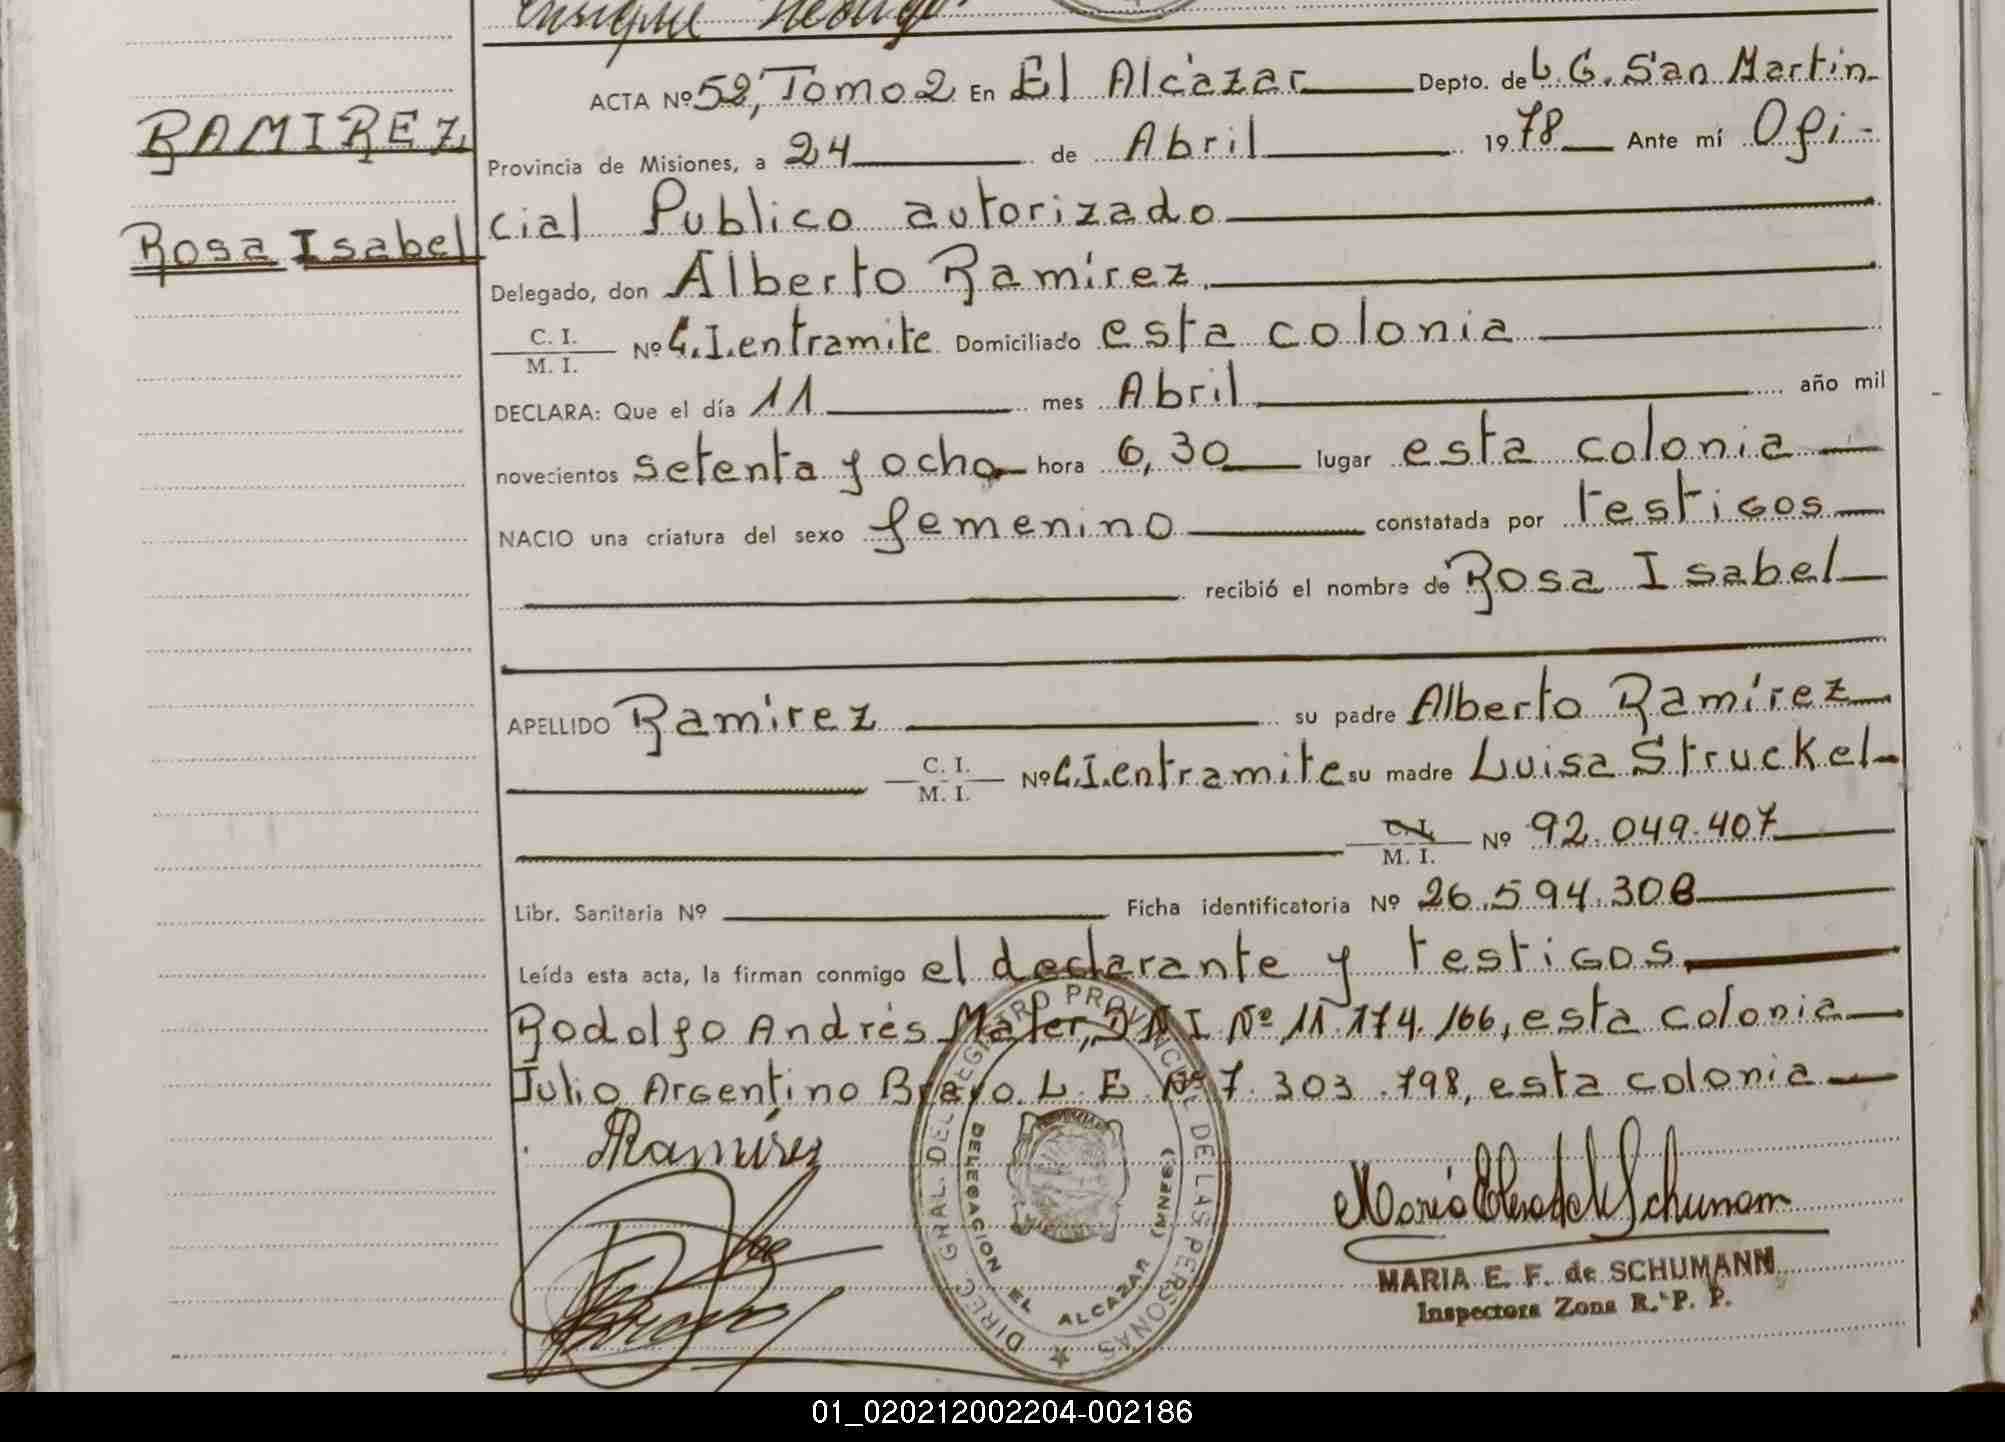 Enrique
ACTA Nº 52, Tomo 2 En El Alcázar Depto. de L. G. San Martin
RAMIREZ
Provincia de Misiones, a 24 de Abril 1978 Ante mí Ofi-
cial Publico autorizado
Rosa Isabel
Delegado, don Alberto Ramírez
C. I.
M. I. Nº C.I. entramite Domiciliado esta colonia
DECLARA: Que el día 11 mes Abril año mil
novecientos setenta y ocho hora 6,30 lugar esta colonia
NACIO una criatura del sexo femenino constatada por testigos
recibió el nombre de Rosa Isabel
APELLIDO Ramírez su padre Alberto Ramírez
C. I.
M. I. Nº C.I. entramite su madre Luisa Struckel
C. I.
M. I. Nº 92.049.407
Libr. Sanitaria Nº Ficha identificatoria Nº 26.594.308
Leída esta acta, la firman conmigo el declarante y testigos
Rodolfo Andrés DNI Nº 11.174.166, esta colonia
Julio Argentino Bravo L. E. Nº 7.303.798, esta colonia
ARamírez
DIREC. GRAL. DEL REGISTRO PROVINCIAL DE LAS PERSONAS
DELEGACION EL ALCAZAR (MNES)
MARIA E. F. de SCHUMANN
Inspectora Zona R. P. P.
01_020212002204-002186